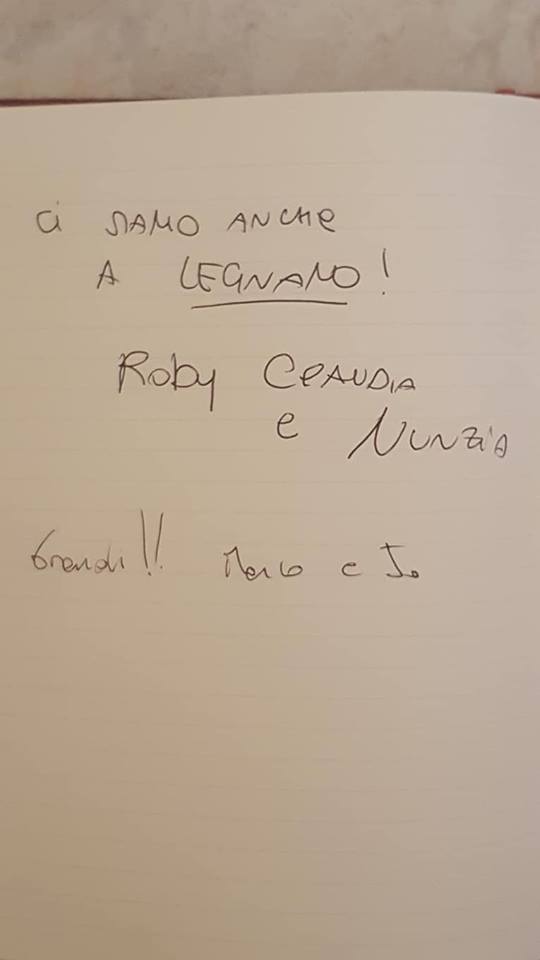 Ci SIAMO ANCHE
A LEGNANO!
Roby CLAUDIA
e NUNZIA
Grandi!! Marco e Jo